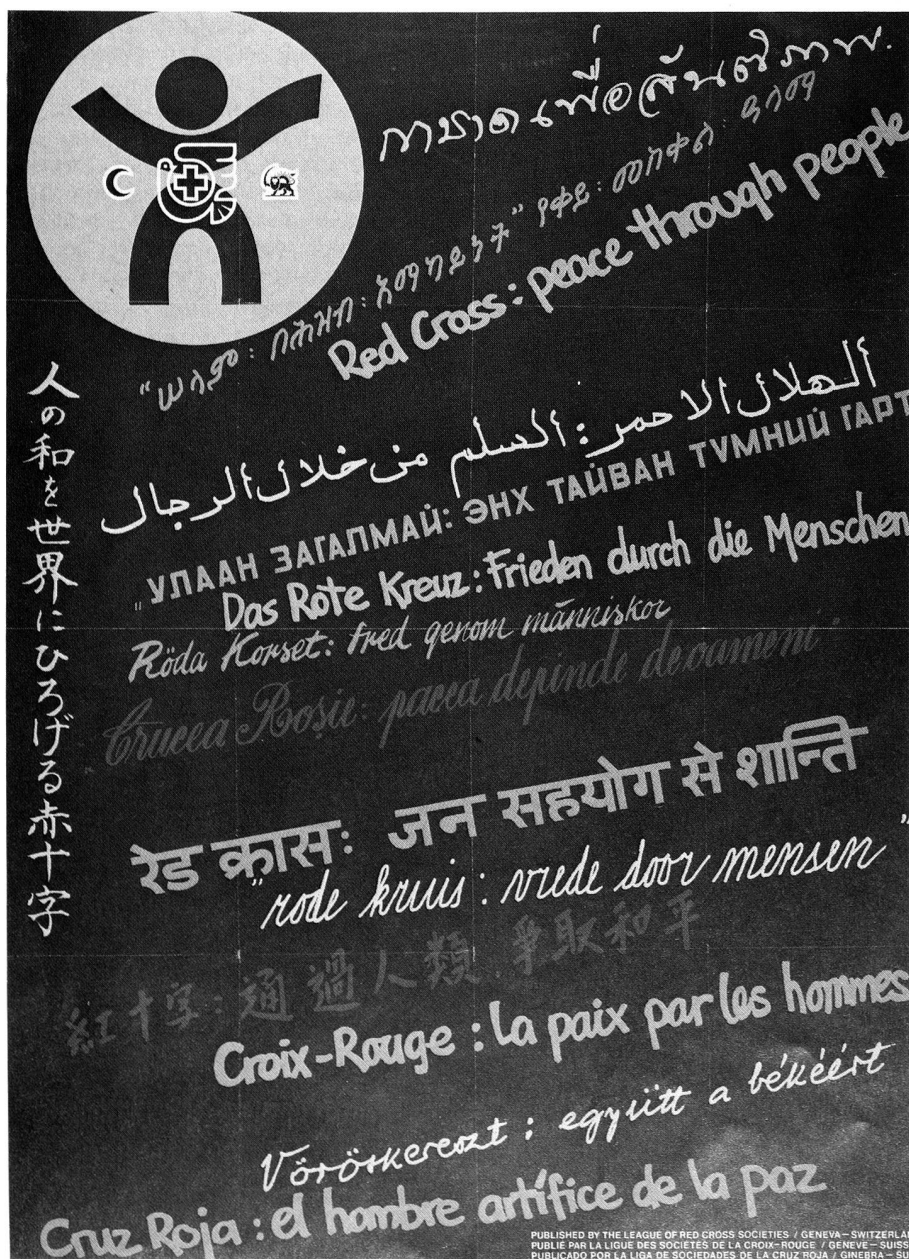 กาชาดเพื่อสันติภาพ.
"ሠላም፡ በሕዝብ፡ አማካይነት" የቀይ፡ መስቀል፡ ዓላማ
Red Cross: peace through people
الهلال الاحمر: السلم من خلال الرجال
"УЛААН ЗАГАЛМАЙ: ЭНХ ТАЙВАН ТУМНИЙ ГАРТ
Das Rote Kreuz: Frieden durch die Menschen
Röda Korset: fred genom människor
Crucea Roşie: pacea depinde de oameni
人の和を世界にひろげる赤十字
रेड क्रासः जन सहयोग से शान्ति
"rode kruis: vrede door mensen"
紅十字:通過人類.爭取和平
Croix-Rouge: la paix par les hommes
Vöröskereszt: együtt a békéért
Cruz Roja: el hombre artífice de la paz
PUBLISHED BY THE LEAGUE OF RED CROSS SOCIETIES / GENEVA – SWITZERLAN
PUBLIÉ PAR LA LIGUE DES SOCIÉTÉS DE LA CROIX-ROUGE / GENÈVE – SUISS
PUBLICADO POR LA LIGA DE SOCIEDADES DE LA CRUZ ROJA / GINEBRA – SUI